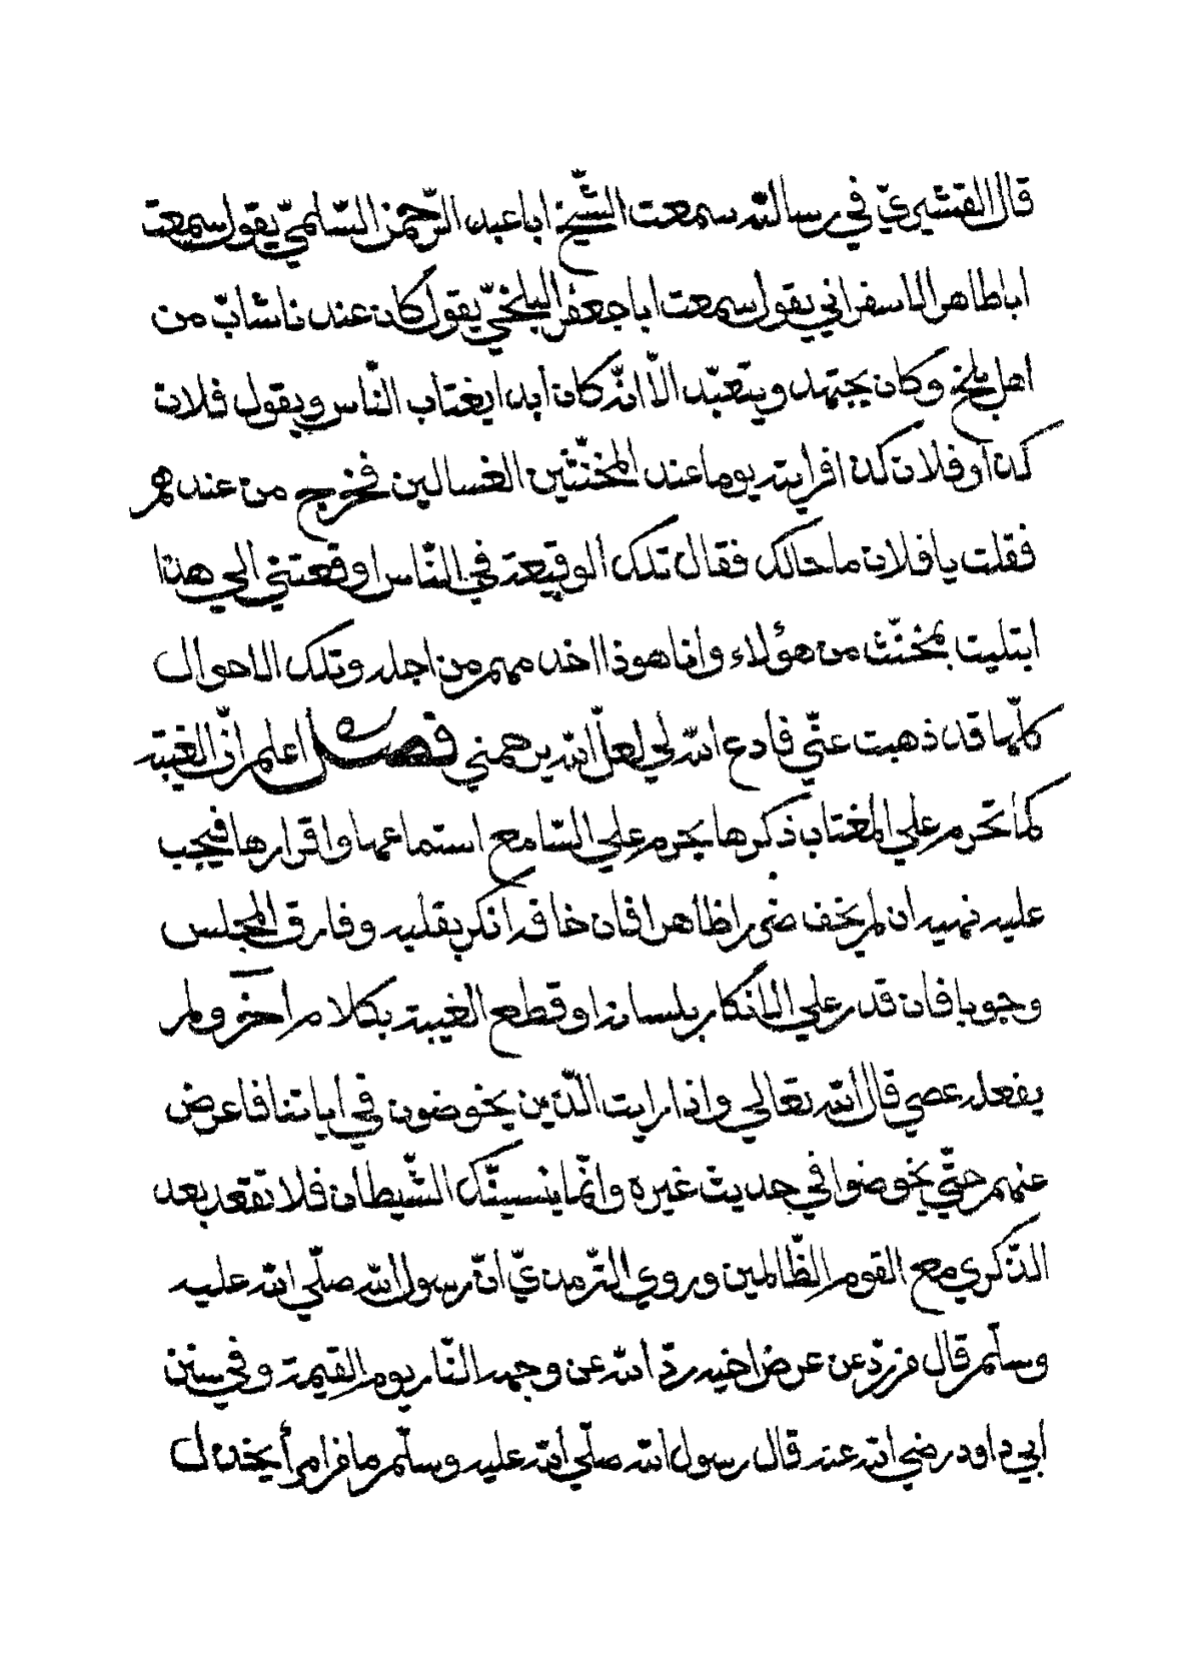 قال القشيري في رسالته سمعت الشّيخ ابا عبد الرّحمن السّلميّ يقول سمعت
ابا طاهر الاسفراني يقول سمعت ابا جعفر البلخيّ يقول كان عندنا شابّ من
اهل بلخ وكان يجتهد ويتعبّد الّا انّه كان أبدا يغتاب النّاس ويقول فلان
كذا وفلان كذا فرايته يوما عند المخنّثين الغسالين فخرج من عندهم
فقلت يا فلان ما حالك فقال تلك الوقيعة في النّاس اوقعتني الي هذا
ابتليت بمخنّث من هؤلاء وانا هوذا اخدمهم من اجله وتلك الاحوال
كلّها قد ذهبت عنّي فادع الله لي لعلّ الله يرحمني فصل اعلم انّ الغيبة
كما تحرم علي المغتاب ذكرها يحرم علي السّامع استماعها واقرارها فيجب
عليه نهيه ان لم يخف ضررا ظاهرا فان خافه انكر بقلبه وفارق المجلس
وجوبا فان قدر علي الانكار بلسانه او قطع الغيبة بكلام آخر ولم
يفعله عصي قال الله تعالي واذا رايت الّذين يخوضون في اياتنا فاعرض
عنهم حتّي يخوضوا في حديث غيره وامّا ينسينّك الشّيطان فلا تقعد بعد
الذّكري مع القوم الظّالمين وروي التّرمذيّ انّ رسول الله صلّي الله عليه
وسلّم قال من ردّ عن عرض اخيه ردّ الله عن وجهه النّار يوم القيمة وفي سنن
ابي داود رضي الله عنه قال رسول الله صلّي الله عليه وسلّم ما من امرأ يخذل